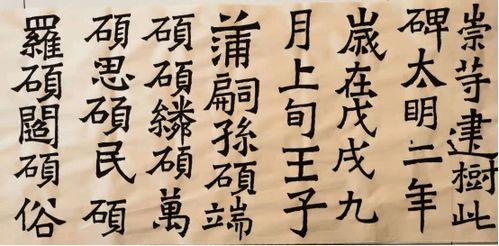 崇等建樹此
碑太明二年
歲在戊戌九
月上旬壬子
蒲嗣孫碩端
碩碩繗碩萬
碩思碩民碩
羅碩閻碩俗